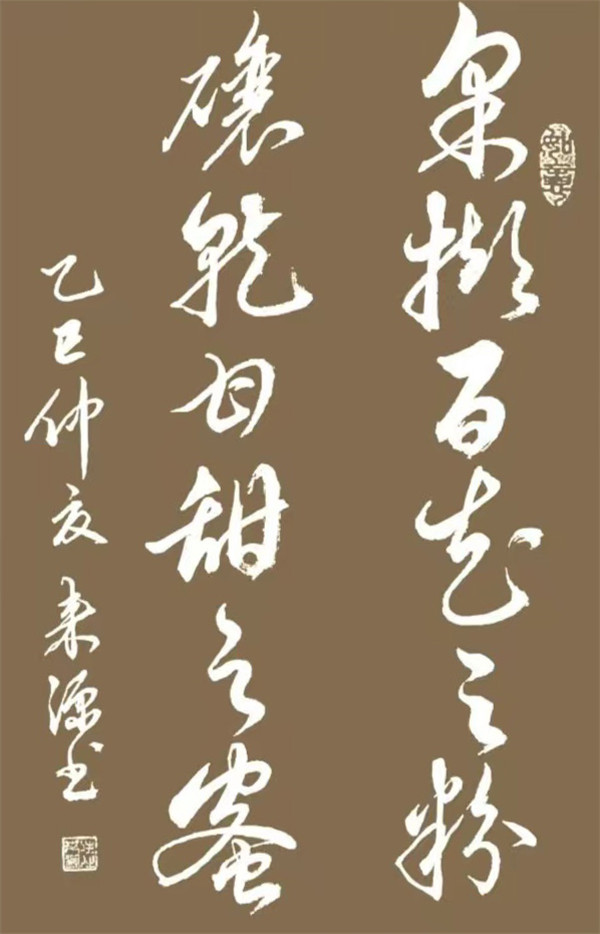 如意
采撷百花之粉
酿就甘甜之蜜
乙巳仲夏 来源书